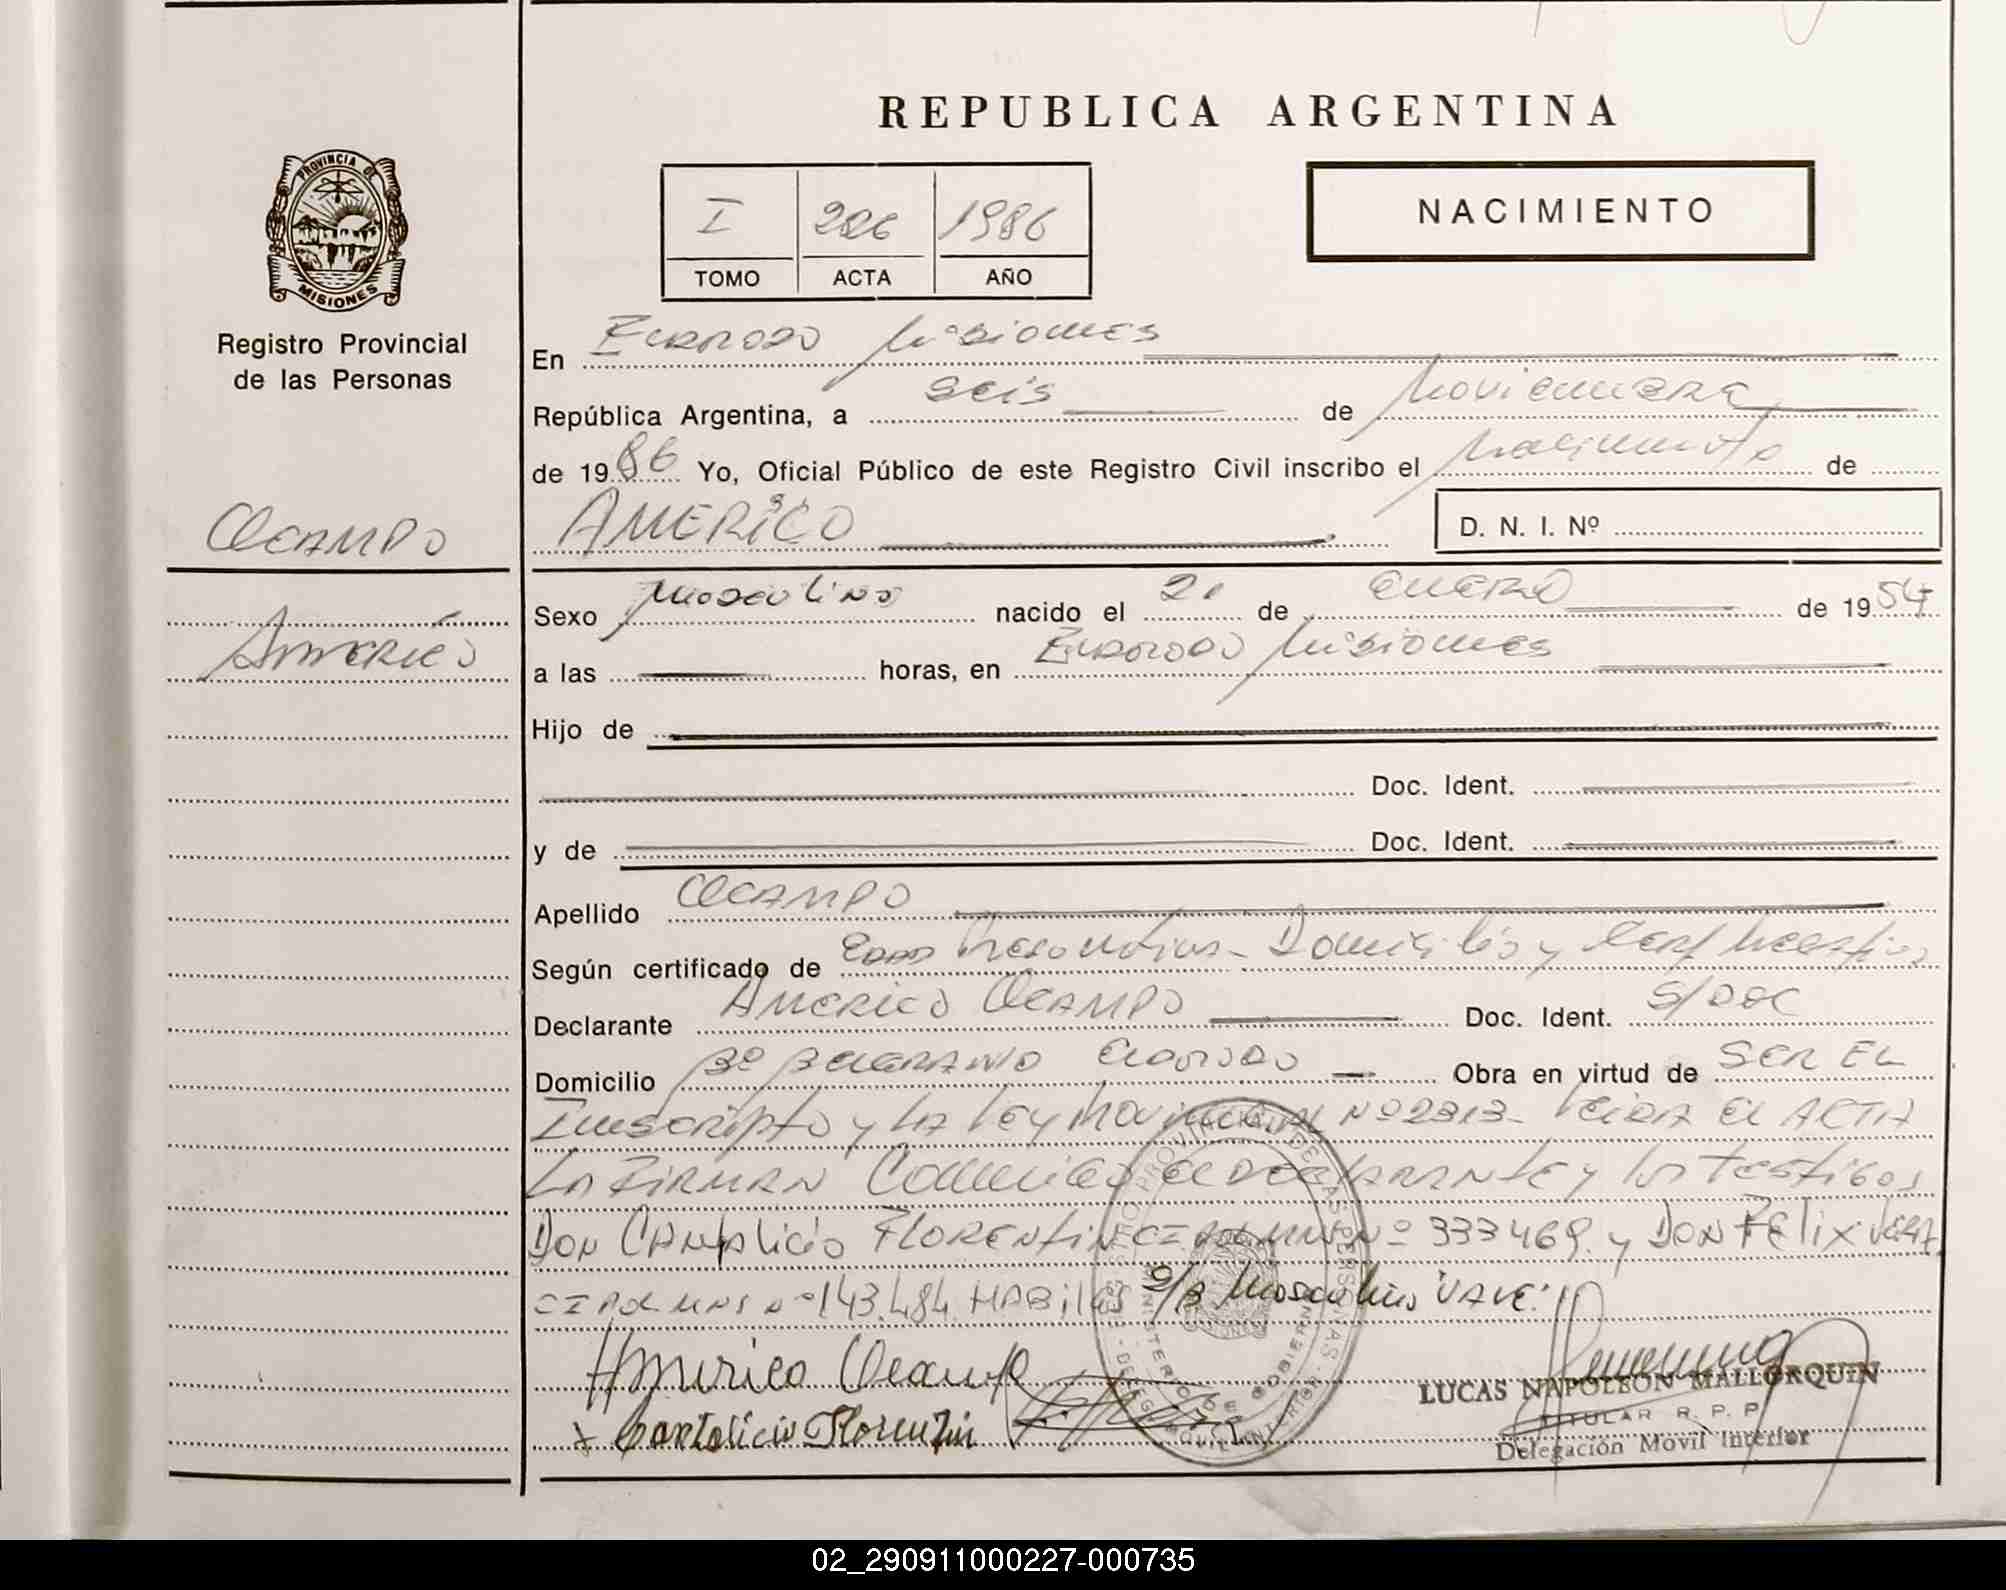 REPUBLICA ARGENTINA
PROVINCIA DE
MISIONES
Registro Provincial
de las Personas
I 226 1986
TOMO ACTA AÑO
NACIMIENTO
En Eldorado Misiones
República Argentina, a seis de Noviembre
de 1986 Yo, Oficial Público de este Registro Civil inscribo el Nacimiento de
OCAMPO
AMERICO
D. N. I. Nº
Américo
Sexo Masculino nacido el 21 de enero de 1954
a las horas, en Eldorado Misiones
Hijo de
Doc. Ident.
y de Doc. Ident.
Apellido OCAMPO
Según certificado de Edad Presuntiva - Domicilio y Cert Negativo
Declarante AMERICO OCAMPO Doc. Ident. S/DOC
Domicilio Bº BELGRANO Eldorado Obra en virtud de SER EL
Inscripto y LA Ley Provincial Nº 2313 - Leida el ACTA
LA FIRMAN Conmigo el DECLARANTE y los Testigos
DON CANTALICIO FLORENTIN CI POL MNS Nº 333469 y DON FELIX VERA
CI POL MNS Nº 143.484 HABILES S/B Masculino VALE.
Americo Ocampo
Cantalicio Florentin
LUCAS NAPOLEON MALLORQUIN
TITULAR R. P. P.
Delegación Móvil Interior
REGISTRO PROVINCIAL DE LAS PERSONAS
MINISTERIO DE GOBIERNO
DELEG. MOVIL INTERIOR
02_290911000227-000735